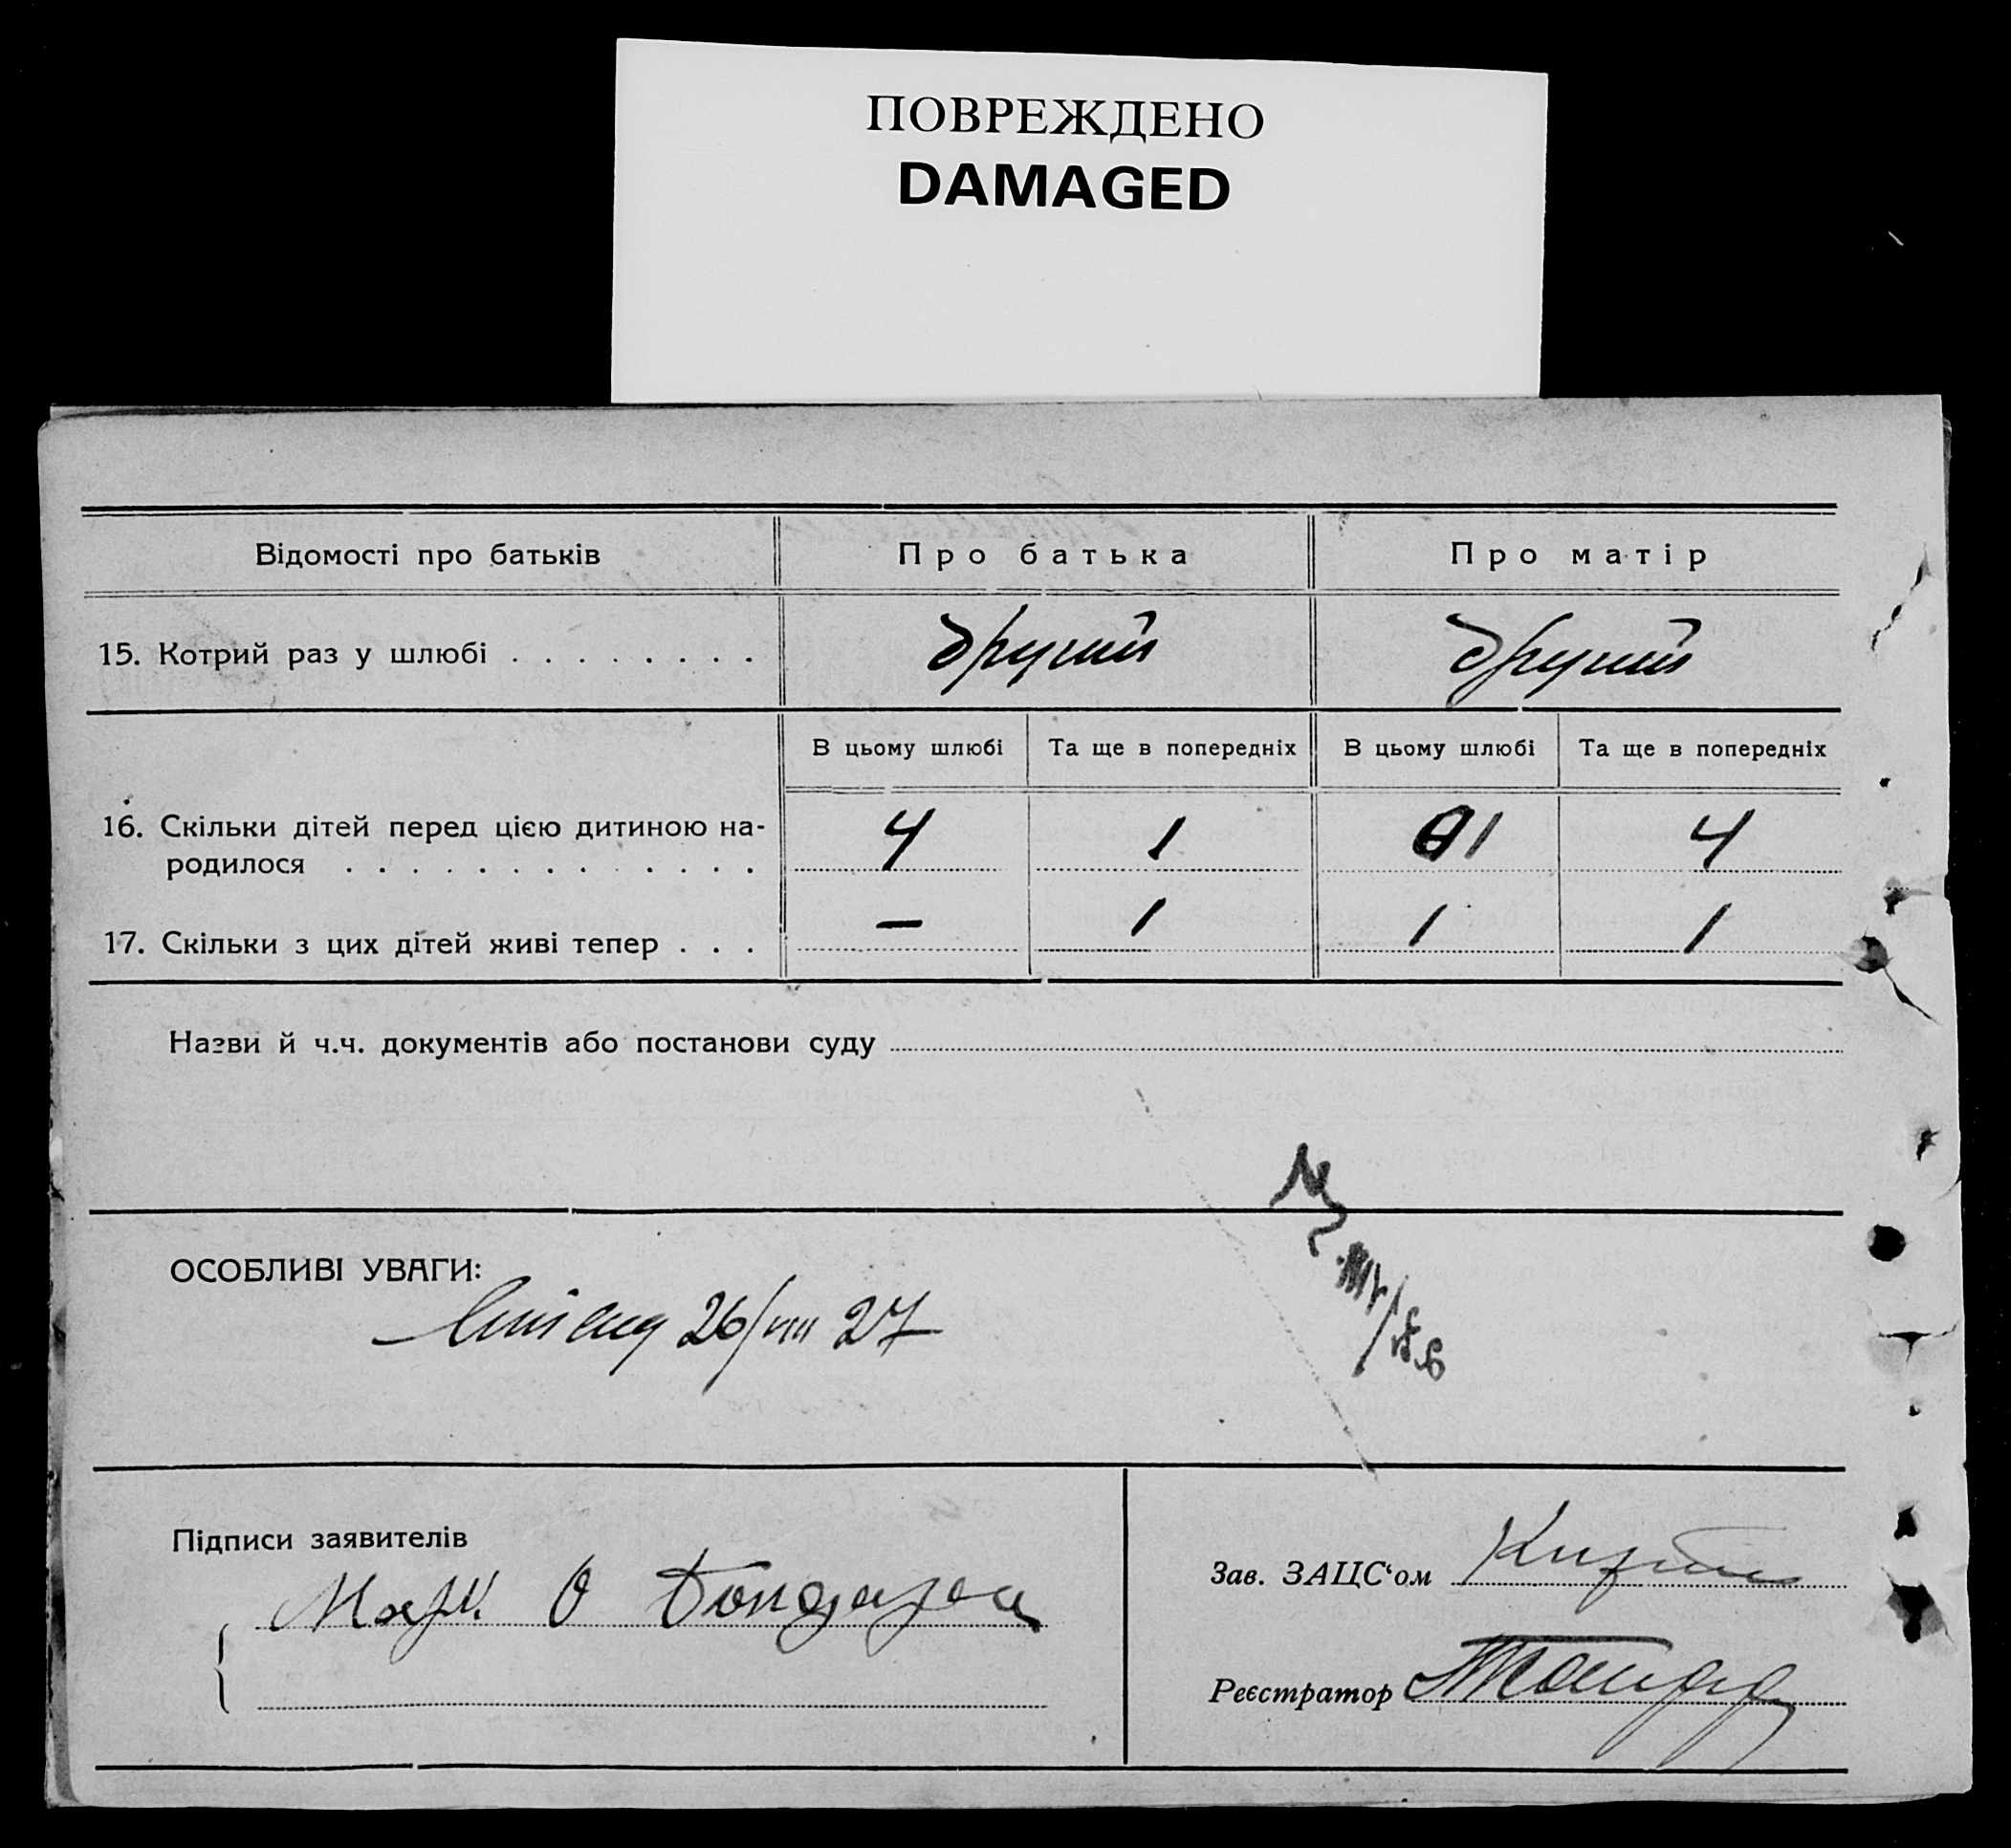 ПОВРЕЖДЕНО
DAMAGED
Відомості про батьків
Про батька
Про матір
15. Котрий раз у шлюбі . . . . . . . .
другий
другий
В цьому шлюбі
Та ще в попередніх
В цьому шлюбі
Та ще в попередніх
16. Скільки дітей перед цією дитиною на-
родилося . . . . . . . . . . . . .
4
1
1
4
17. Скільки з цих дітей живі тепер . . .
—
1
1
1
Назви й ч.ч. документів або постанови суду
ОСОБЛИВІ УВАГИ:
26/VIII 27
Підписи заявителів
О Бондарец
Зав. ЗАЦС‘ом
Реєстратор